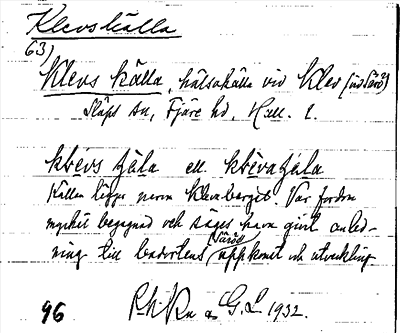 Klevskälla
63)
Klevs källa, hälsokälla vid Klev (vid Särö)
Släps sn, Fjäre hd, Hall. l.
klévs tjäla ell. klévatjäla
Källan ligger nära Klevaberget. Var fordom
mycket begagnad och säges have givit anled-
ning till badortens Särös uppkomst och utveckling
96 G. L. 1932.